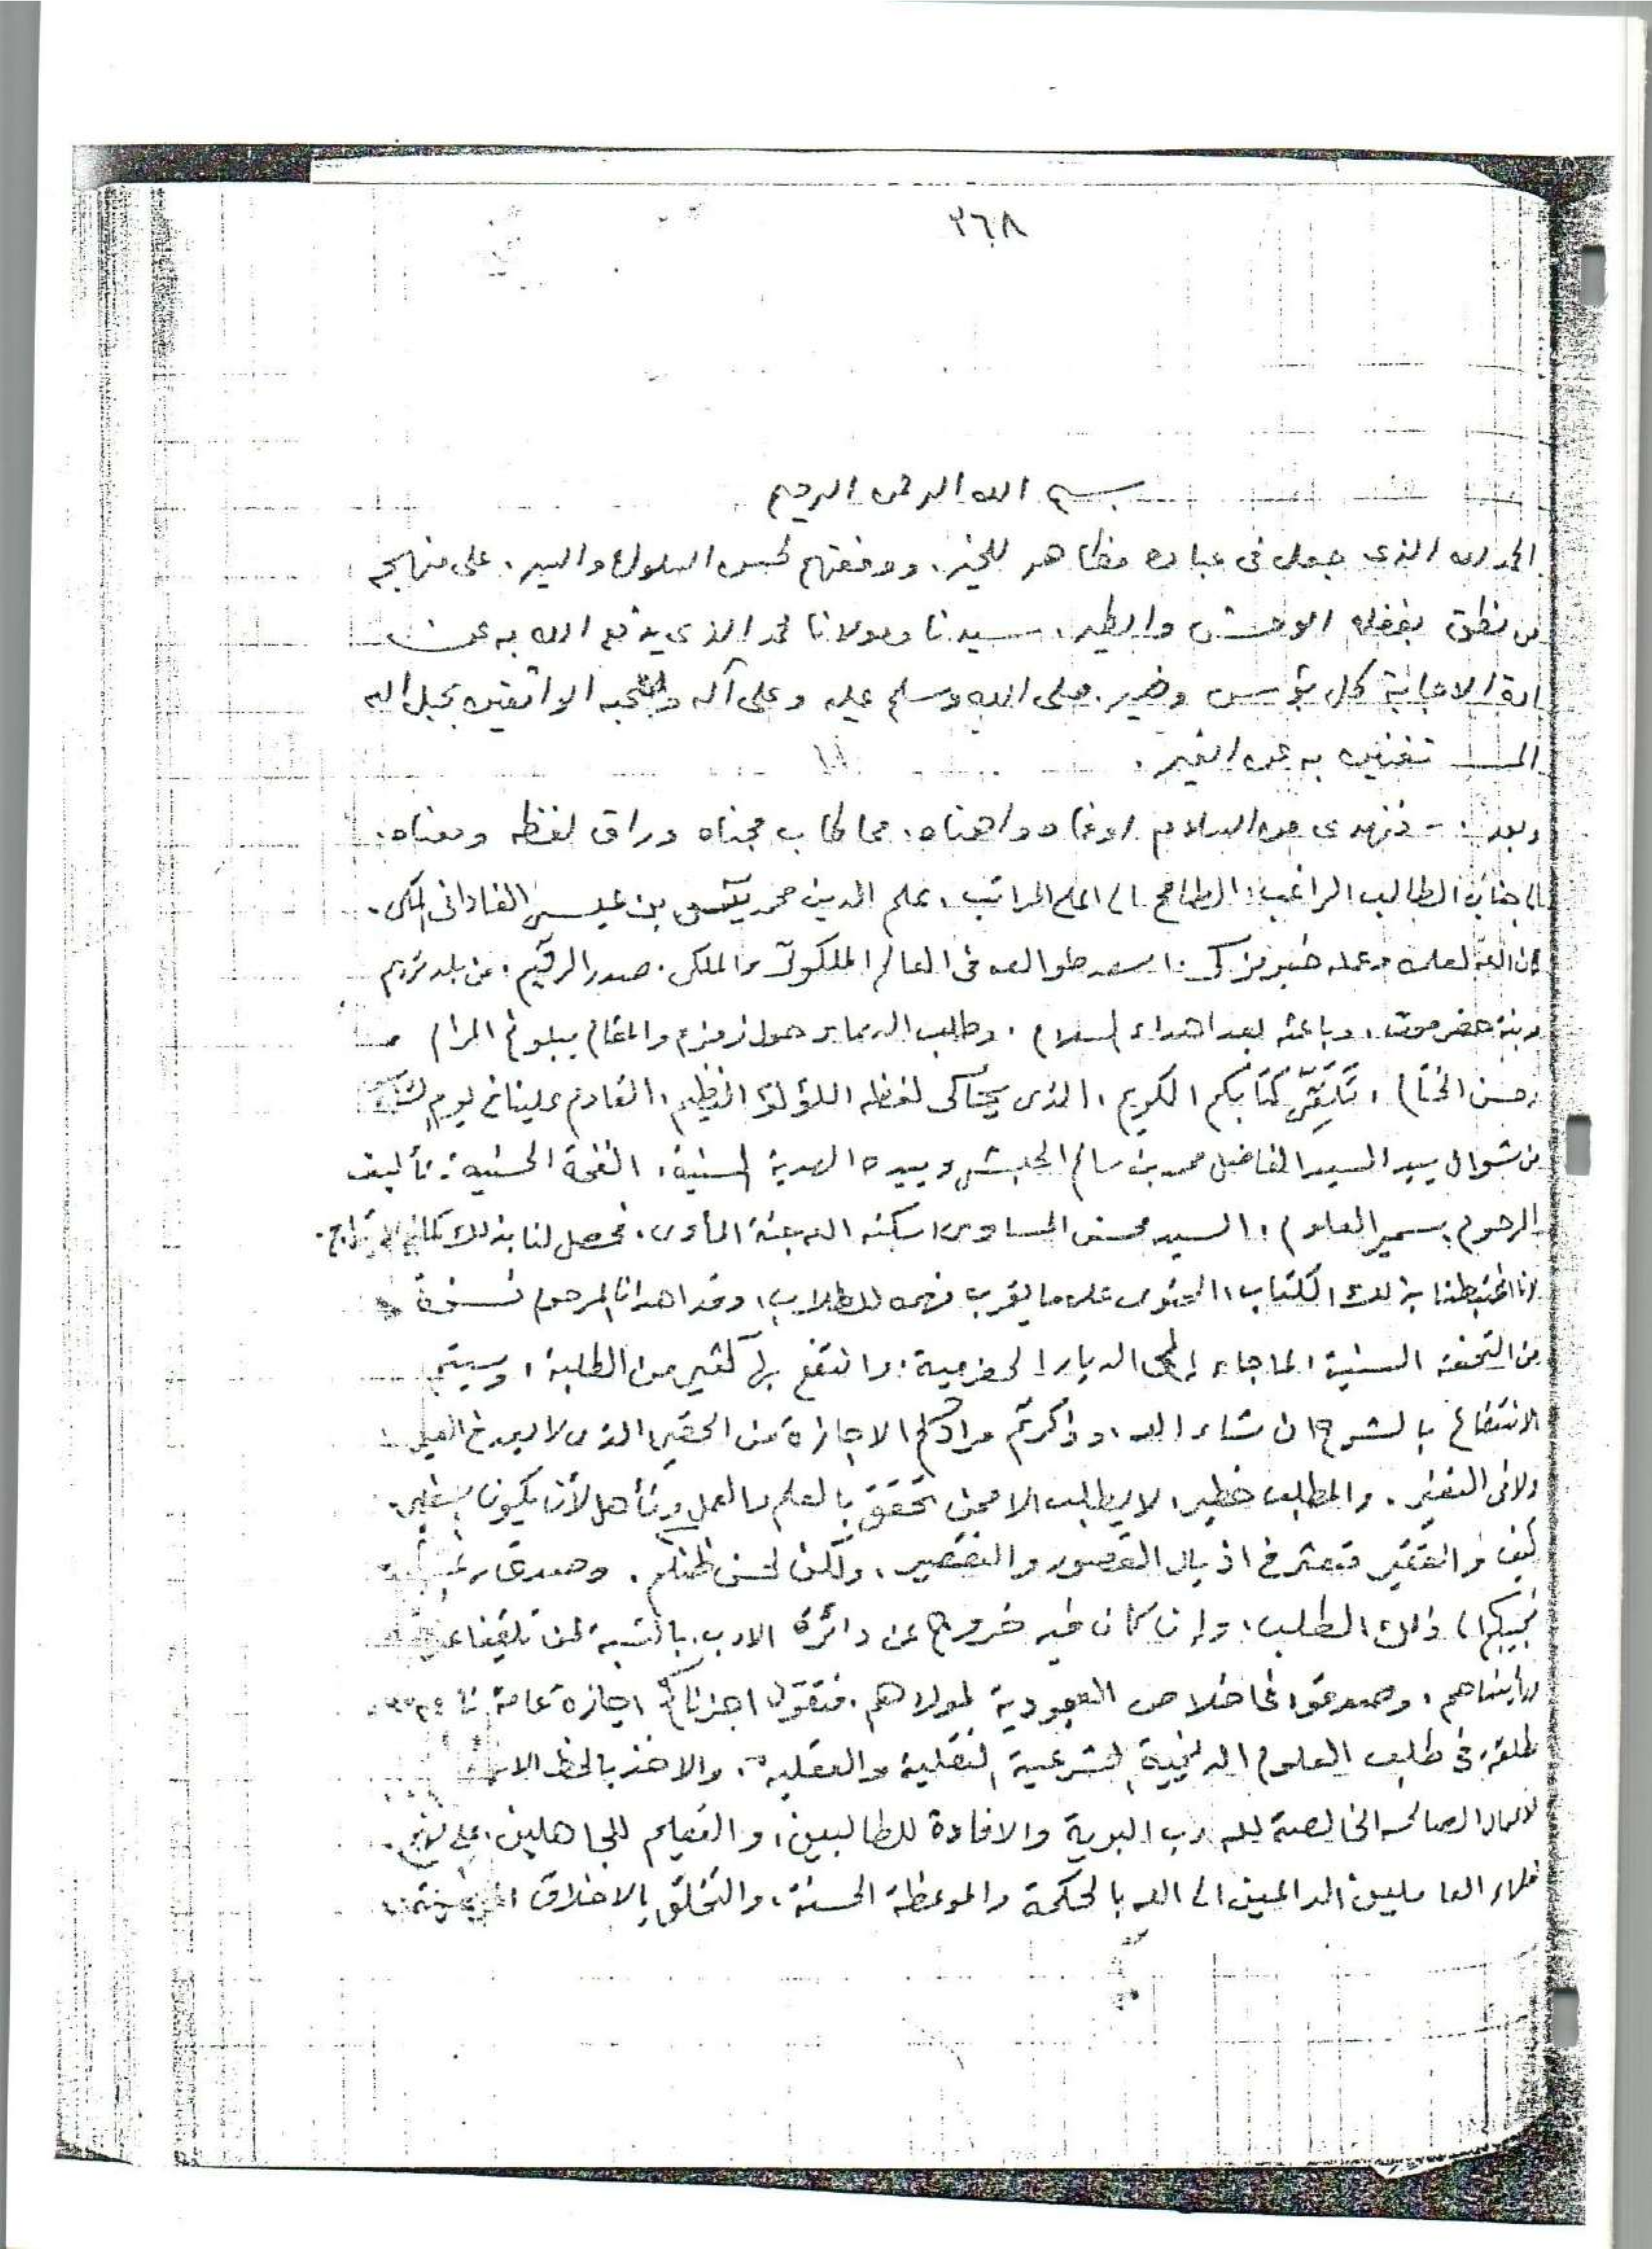 ٣٦٨
بسم الله الرحمن الرحيم
الحمد لله الذي جعل في عباده مظاهر للخير، ووفقهم لحسن السلوك والسير، على منهج
من نطق بفضله الوحش والطير، سيدنا ومولانا محمد الذي يدفع الله به عن
الإجابة كل بؤس وضير، صلى الله وسلم عليه وعلى آله وصحبه الواثقين بحبل الله
المستغنين به عن الغير.
وبعد :- فنهدي من السلام اوفاه واهناه، مما طاب مجناه وراق لفظه ومعناه،
الطالب الراغب، الطامح الى اعلى المراتب، علم الدين محمد يٓس بن عيسى الفاداني المكي.
كان الله لعلمه وعمله خير مزكي، اسعد طوالعه في العالم الملكوتي والملكي. صدر الرقيم، من بلد تريم
حضرموت، وباعثه بعد اهداء السلام، وطلب الدعاء حول زمزم والمقام ببلوغ المرام
وحسن الختام، كتابكم الكريم، الذي يحاكي لفظه اللؤلؤ النظيم، القادم علينا في يوم
من شوال بيد السيد الفاضل محمد بن سالم الحبشي وبيده الهدية السنية، النفحة الحسنية: تأليف
المرحوم سمير العلوم، السيد محسن المساوى اسكنه الله جنة المأوى، فحصل لنا بذلك كمال الابتهاج.
لانا اغتبطنا بذلك الكتاب، المحتوي على ما يقرب فهمه للطلاب، وقد اهدانا المرحوم نسخة
من التحفة السنية لما جاء إلى الديار الحضرمية، وانتفع بها كثير من الطلبة، وسيتم
الانتفاع بالشرح ان شاء الله، وذكرتم مرادكم الاجازة من الحقير الذي لا يعد في العير
ولا في النفير. والمطلب خطير، لا يطلب الا ممن تحقق بالعلم والعمل وتأهل لأن يكون
كيف والفقير متعثر في اذيال القصور والتقصير، ولكن لحسن ظنكم، وصدق
نجيبكم الى ذلك الطلب، وإن كان فيه خروج عن دائرة الادب، بالنسبة لمن تلقينا
ورأيناهم، وصدقوا في اخلاص العبودية لمولاهم، فنقول اجزناكم اجازة عامة
مطلقة، في طلب العلوم الدينية الشرعية النقلية والعقلية، والاخذ بالحظ
الاعمال الصالحة الخالصة لله رب البرية والافادة للطالبين، والتعليم للجاهلين، على
العلماء العاملين الداعين الى الله بالحكمة والموعظة الحسنة، والتخلق بالاخلاق